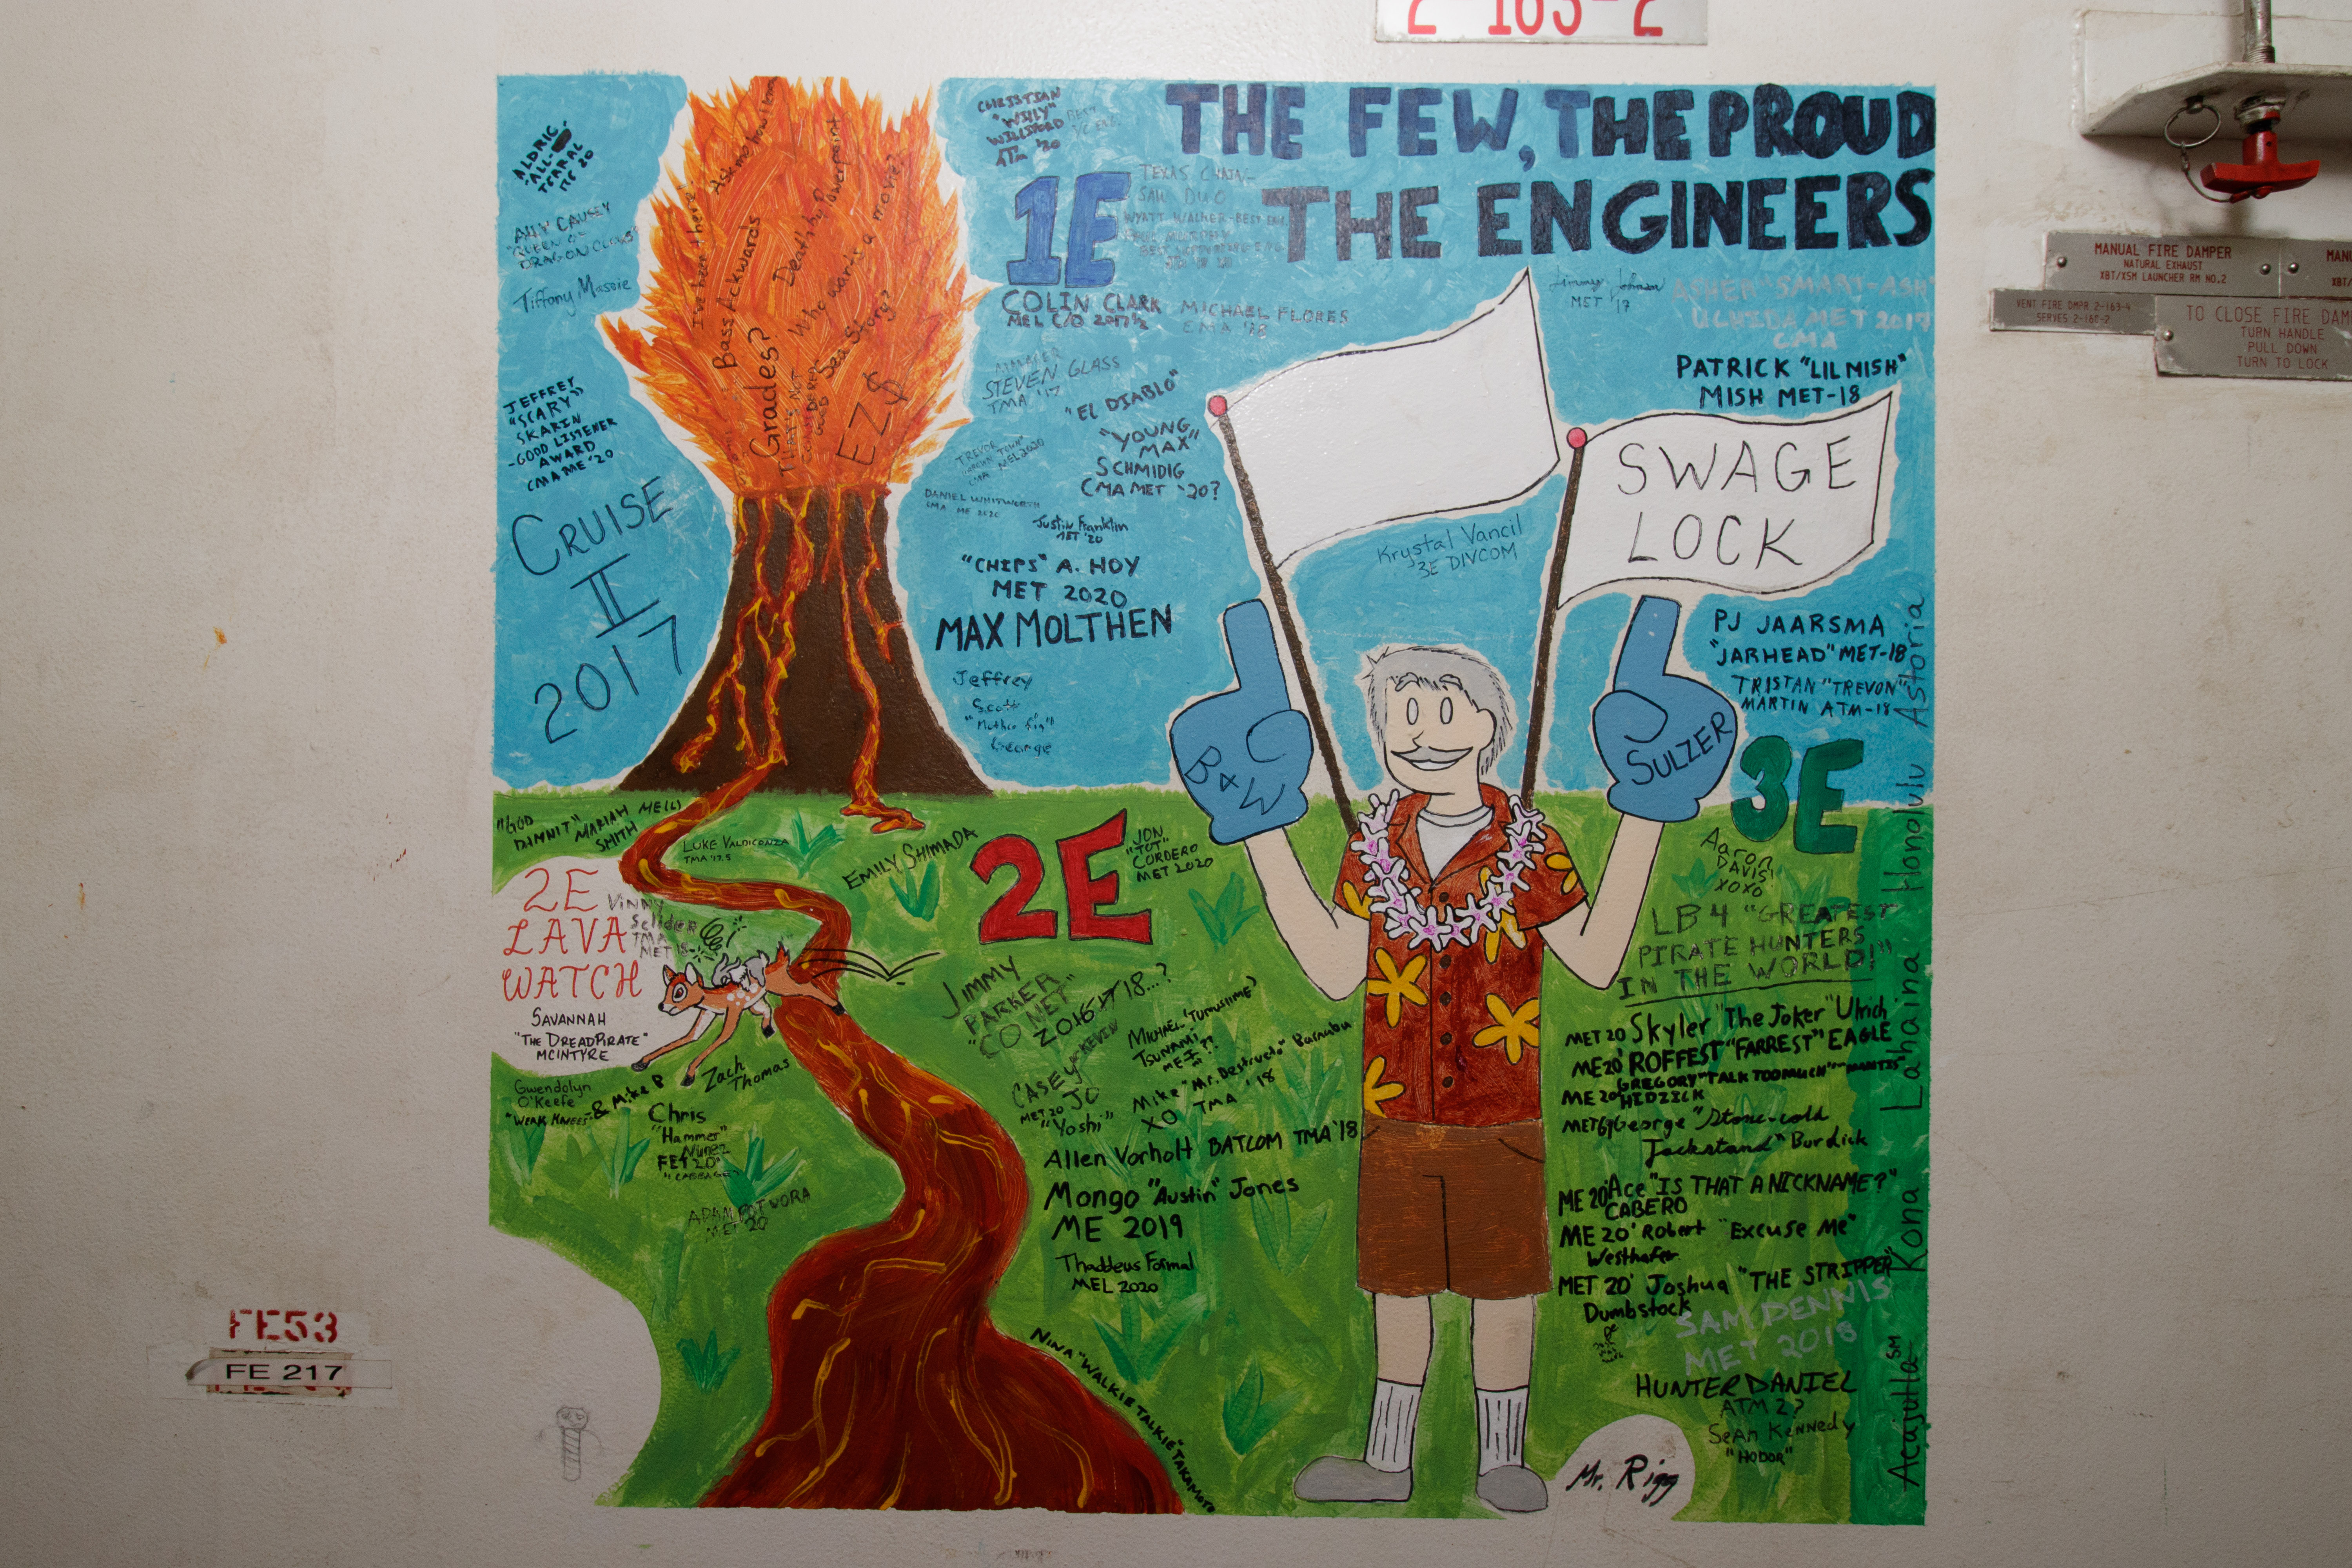 2-163-2
THE FEW, THE PROUD
THE ENGINEERS
MANUAL FIRE DAMPER
NATURAL EXHAUST
XBT/XSM LAUNCHER RM NO.2
VENT FIRE DMPR 2-163-4
SERVES 2-160-2
TO CLOSE FIRE
TURN HANDLE
PULL DOWN
TURN TO LOCK
ALDRIC
ALLY CAUSEY
"QUEEN OF
DRAGON CLAWS"
Tiffany Massie
JEFFREY
"SCARY"
SKARIN
-GOOD LISTENER
AWARD
CMA ME '20
CRUISE
II
2017
I've been there!
Ask me how I know
Bass Ackwards
Death by Powerpoint
Who wants a movie?
Grades?
Sea Story?
EZ$
CHRISTIAN
"WILLY"
WILLIFORD
ATM '20
1E
TEXAS CHAIN-
SAW DUO
COLIN CLARK
MEL C/O 2017½
MICHAEL FLORES
EMA '18
STEVEN GLASS
TMA '17
"EL DIABLO"
"YOUNG
MAX"
SCHMIDIG
CMA MET '20?
DANIEL WHITWORTH
CMA ME 2020
Justin Franklin
MET '20
"CHIPS" A. HOY
MET 2020
MAX MOLTHEN
Jeffrey
Scott
George
Jimmy Johnson
MET '17
ASHER "SMART-ASH"
UCHIDA MET 2017
CMA
PATRICK "LIL MISH"
MISH MET-18
SWAGE
LOCK
Krystal Vancil
3E DIVCOM
PJ JAARSMA
"JARHEAD" MET-18
TRISTAN "TREVON"
MARTIN ATM-18
B&W
SULZER
3E
Aaron
DAVIS
XOXO
LB4 "GREATEST
PIRATE HUNTERS
IN THE WORLD!"
MET 20 Skyler "The Joker" Ulrich
ME 20' ROFFEST "FARREST" EAGLE
ME 20' GREGORY "TALK TOO MUCH"
HIDZICK
George "Stone-cold
Jackstand" Burdick
ME 20' Ace "IS THAT A NICKNAME?"
CABERO
ME 20' Robert "Excuse Me"
Westhafer
MET 20' Joshua "THE STRIPPER"
Dumbstock
SAM DENNIS
MET 2018
HUNTER DANIEL
ATM 2?
Sean Kennedy
"HODOR"
Acajutla SM Kona Lahaina Honolulu Astoria
"GOD
DAMNIT" MARIAH
SMITH
LUKE VALDICONZA
TMA '17.5
EMILY SHIMADA
2E
JON
"TOT"
CORDERO
MET 2020
2E
LAVA
WATCH
Vinny
SAVANNAH
"THE DREADPIRATE"
MCINTYRE
Gwendolyn
O'Keefe
"WEAK KNEES" & Mike B
Zach
Thomas
Chris
"Hammer"
Nunez
FET 20'
JIMMY
PARKER
"CO MET"
CASEY
JO
MET 20
"Yoshi"
MICHAEL
TSUNAMI
Mike "Mr. Destructo" Barnabu
XO TMA '18
Allen Vorholt BATCOM TMA '18
Mongo "Austin" Jones
ME 2019
Thaddeus Formal
MEL 2020
NINA "WALKIE TALKIE" TAKAMOTO
Mr. Rigg
FE53
FE 217